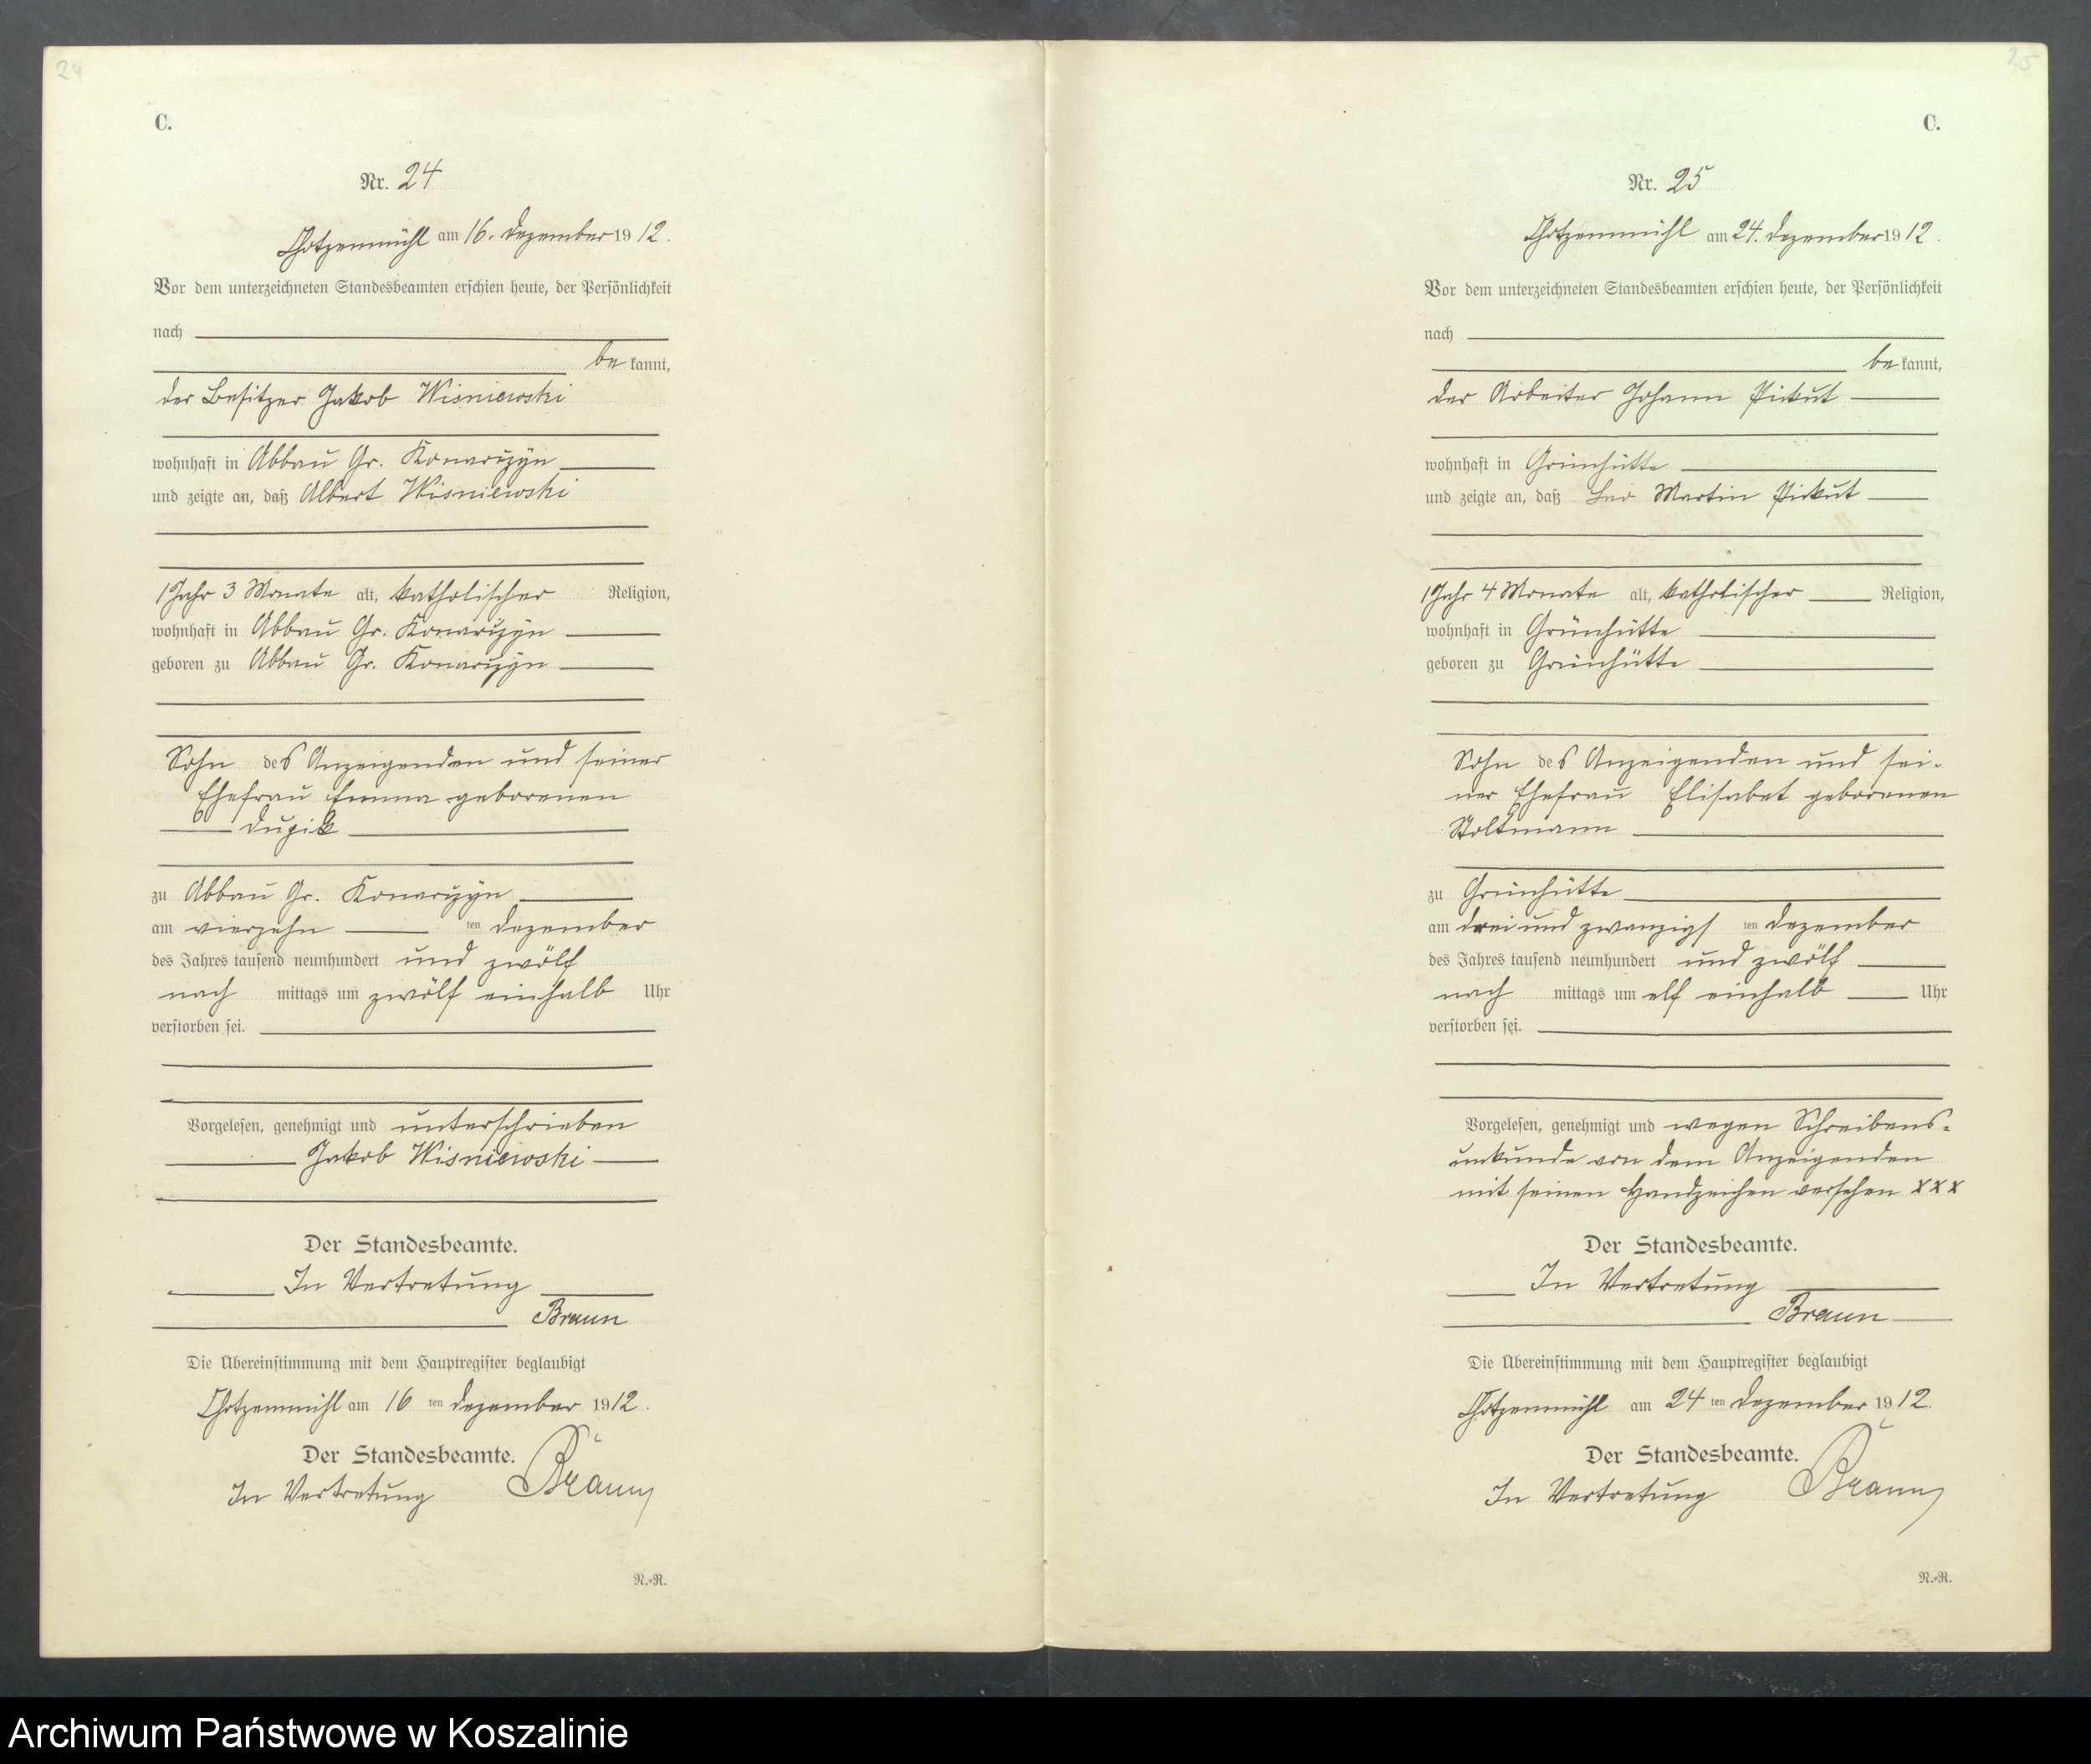 24
C.
Nr. 24
Chotzenmühl am 16. Dezember 1912.
Vor dem unterzeichneten Standesbeamten erschien heute, der Persönlichkeit
nach
bekannt,
der Besitzer Jakob Wisniewski
wohnhaft in Abbau Gr. Konarzyn
und zeigte an, daß Albert Wisniewski
1 Jahr 3 Monate alt, katholischer Religion,
wohnhaft in Abbau Gr. Konarzyn
geboren zu Abbau Gr. Konarzyn
Sohn des Anzeigenden und seiner
Ehefrau Emma geborenen
zu Abbau Gr. Konarzyn
am vierzehn ten Dezember
des Jahres tausend neunhundert und zwölf
nach mittags um zwölf einhalb Uhr
verstorben sei.
Vorgelesen, genehmigt und unterschrieben
Jakob Wisniewski
Der Standesbeamte.
In Vertretung
Braun
Die Übereinstimmung mit dem Hauptregister beglaubigt
Chotzenmühl am 16 ten Dezember 1912.
Der Standesbeamte.
In Vertretung Braun
N.-R.
25
C.
Nr. 25
Chotzenmühl am 24. Dezember 1912.
Vor dem unterzeichneten Standesbeamten erschien heute, der Persönlichkeit
nach
bekannt,
der Arbeiter Johann Pikut
wohnhaft in Grünhütte
und zeigte an, daß Leo Martin Pikut
1 Jahr 4 Monate alt, katholischer Religion,
wohnhaft in Grünhütte
geboren zu Grünhütte
Sohn des Anzeigenden und sei-
ner Ehefrau Elisabet geborenen
Stoltmann
zu Grünhütte
am drei und zwanzigs ten Dezember
des Jahres tausend neunhundert und zwölf
nach mittags um elf einhalb Uhr
verstorben sei.
Vorgelesen, genehmigt und wegen Schreibens-
unkunde von dem Anzeigenden
mit seinen Handzeichen versehen xxx
Der Standesbeamte.
In Vertretung
Braun
Die Übereinstimmung mit dem Hauptregister beglaubigt
Chotzenmühl am 24 ten Dezember 1912.
Der Standesbeamte.
In Vertretung Braun
N.-R.
Archiwum Państwowe w Koszalinie